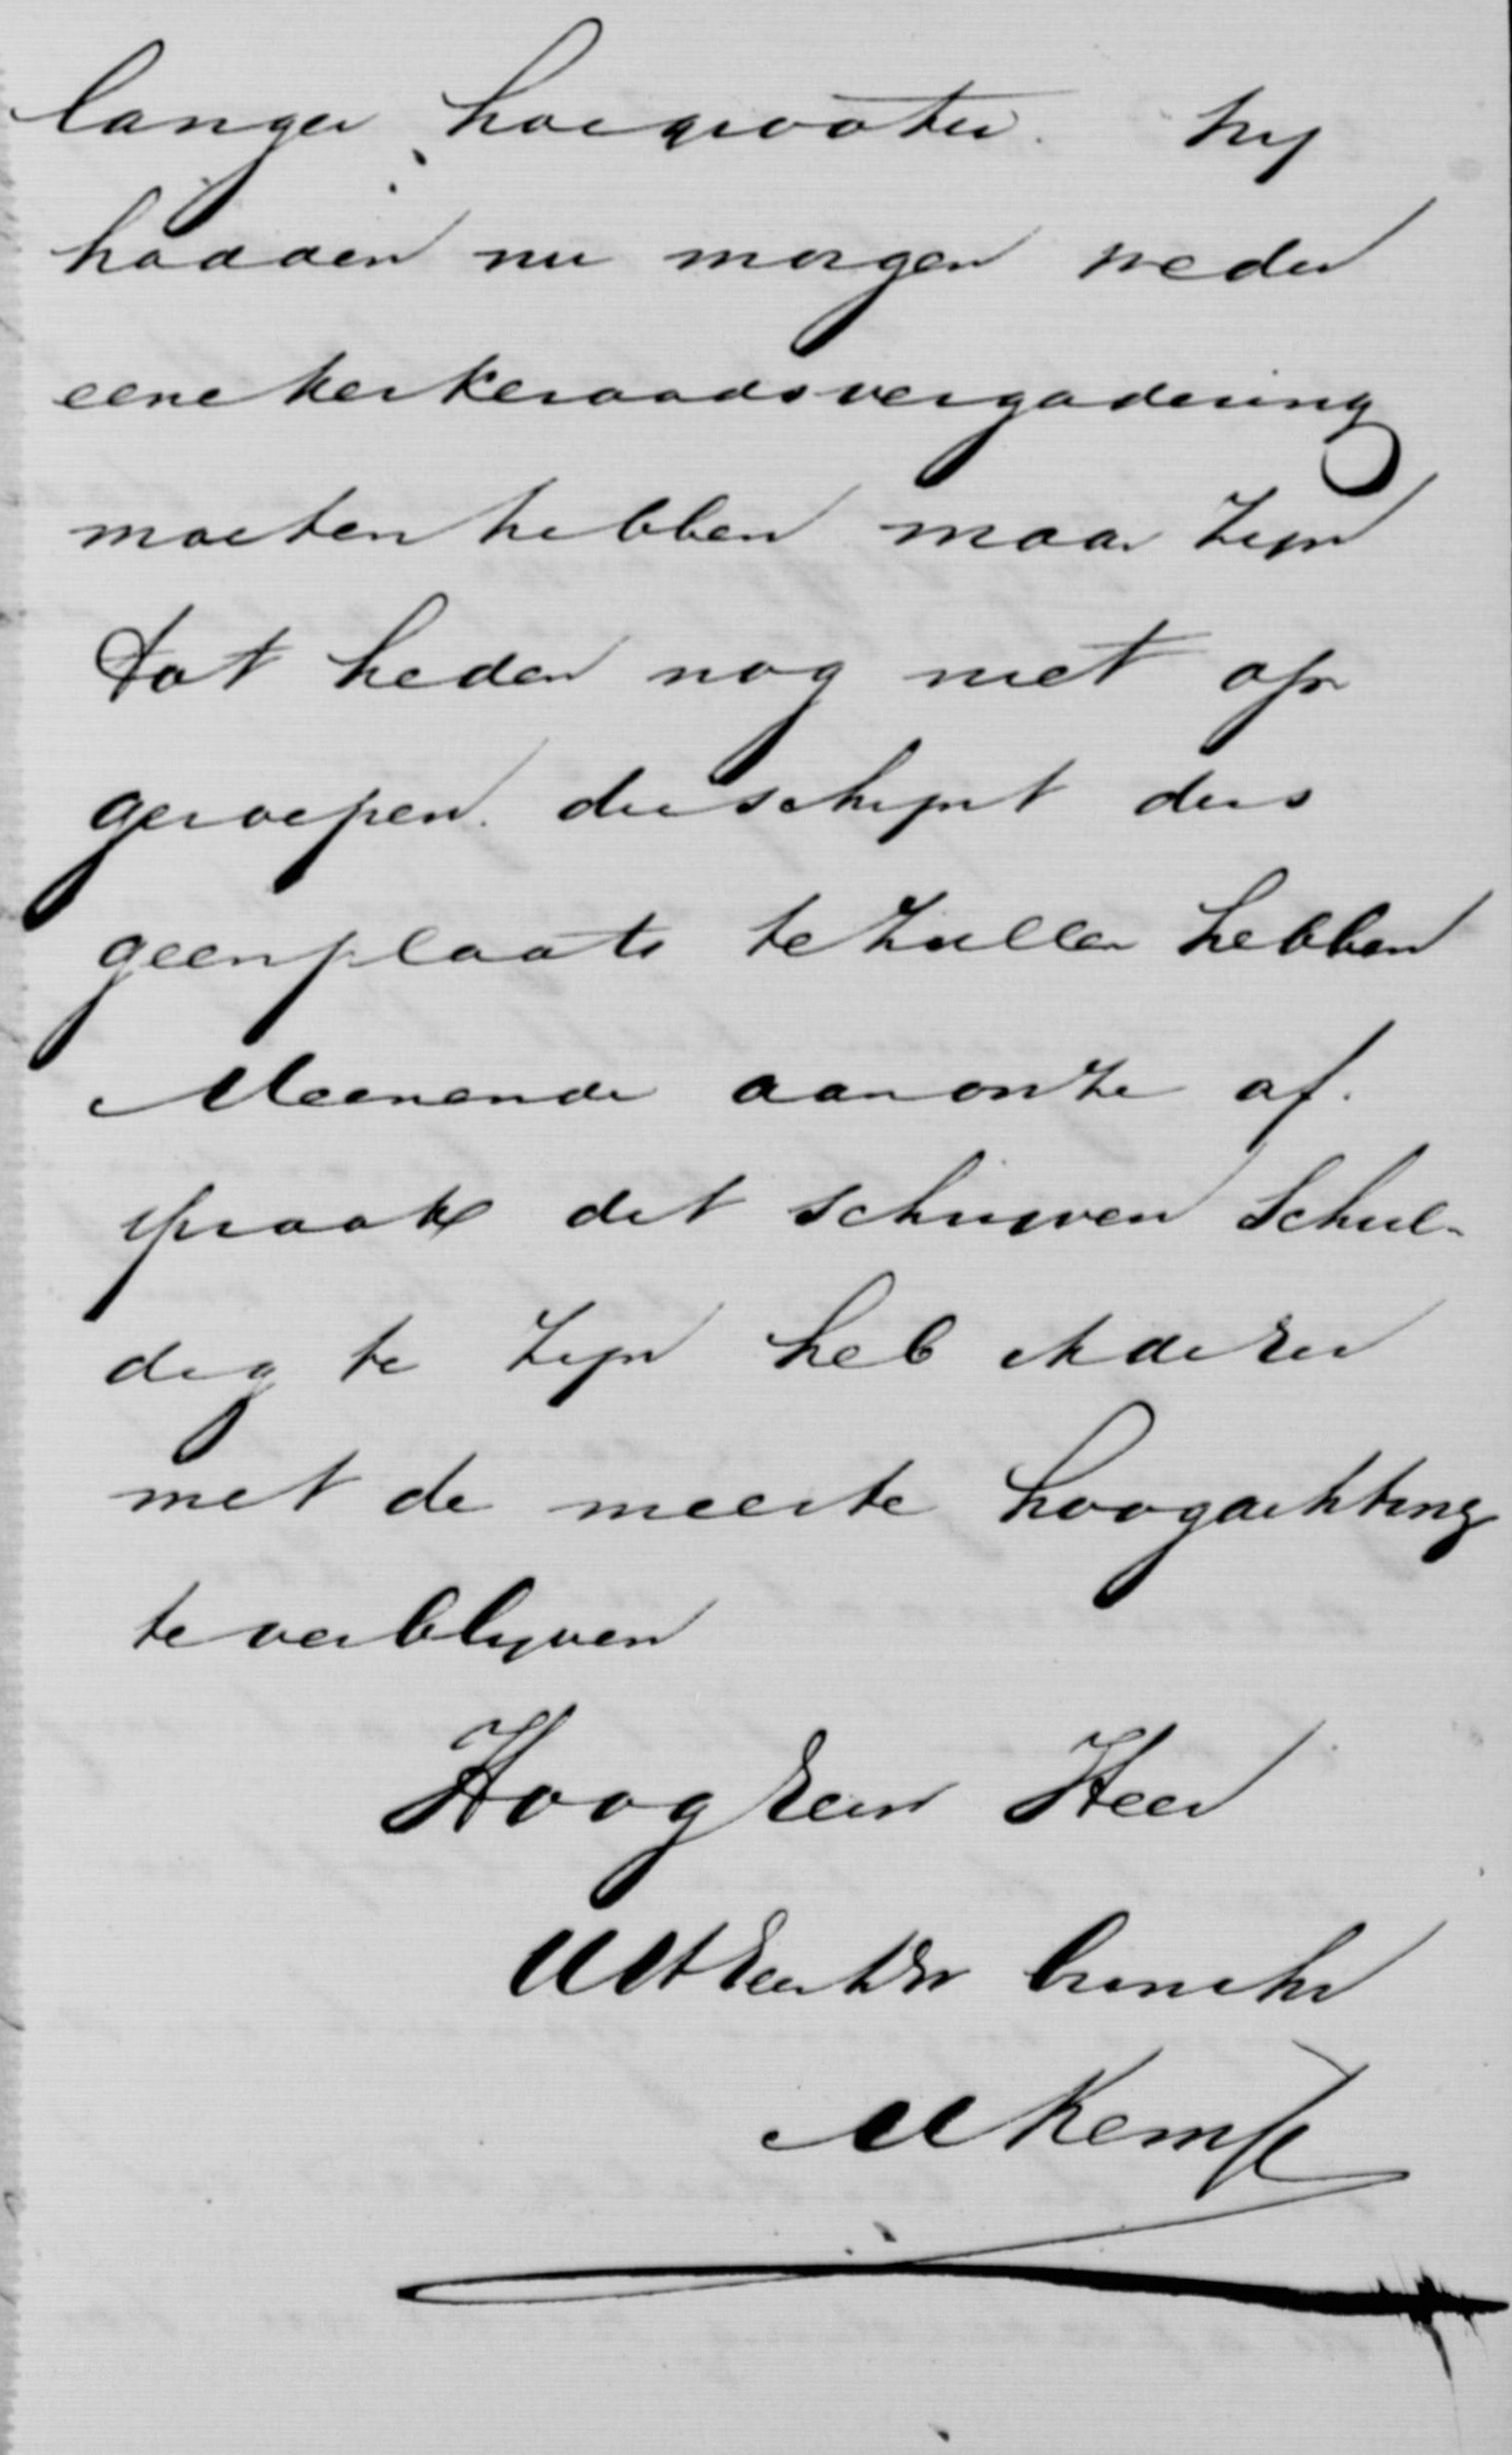 langer hoe grooter. Wy
hadden nu morgen weder
eene kerkeraadsvergadering
moeten hebben maar zyn
tot heden nog niet op
geroepen. die schynt dus
geen plaats te zullen hebben
Meenende aan onze af.
spraak dit schrijven schul-
dig te zyn heb ik de Eer
met de meeste hoogachting
te verblyven
Hoog Eerw Heer
UWEerw
M Kempe